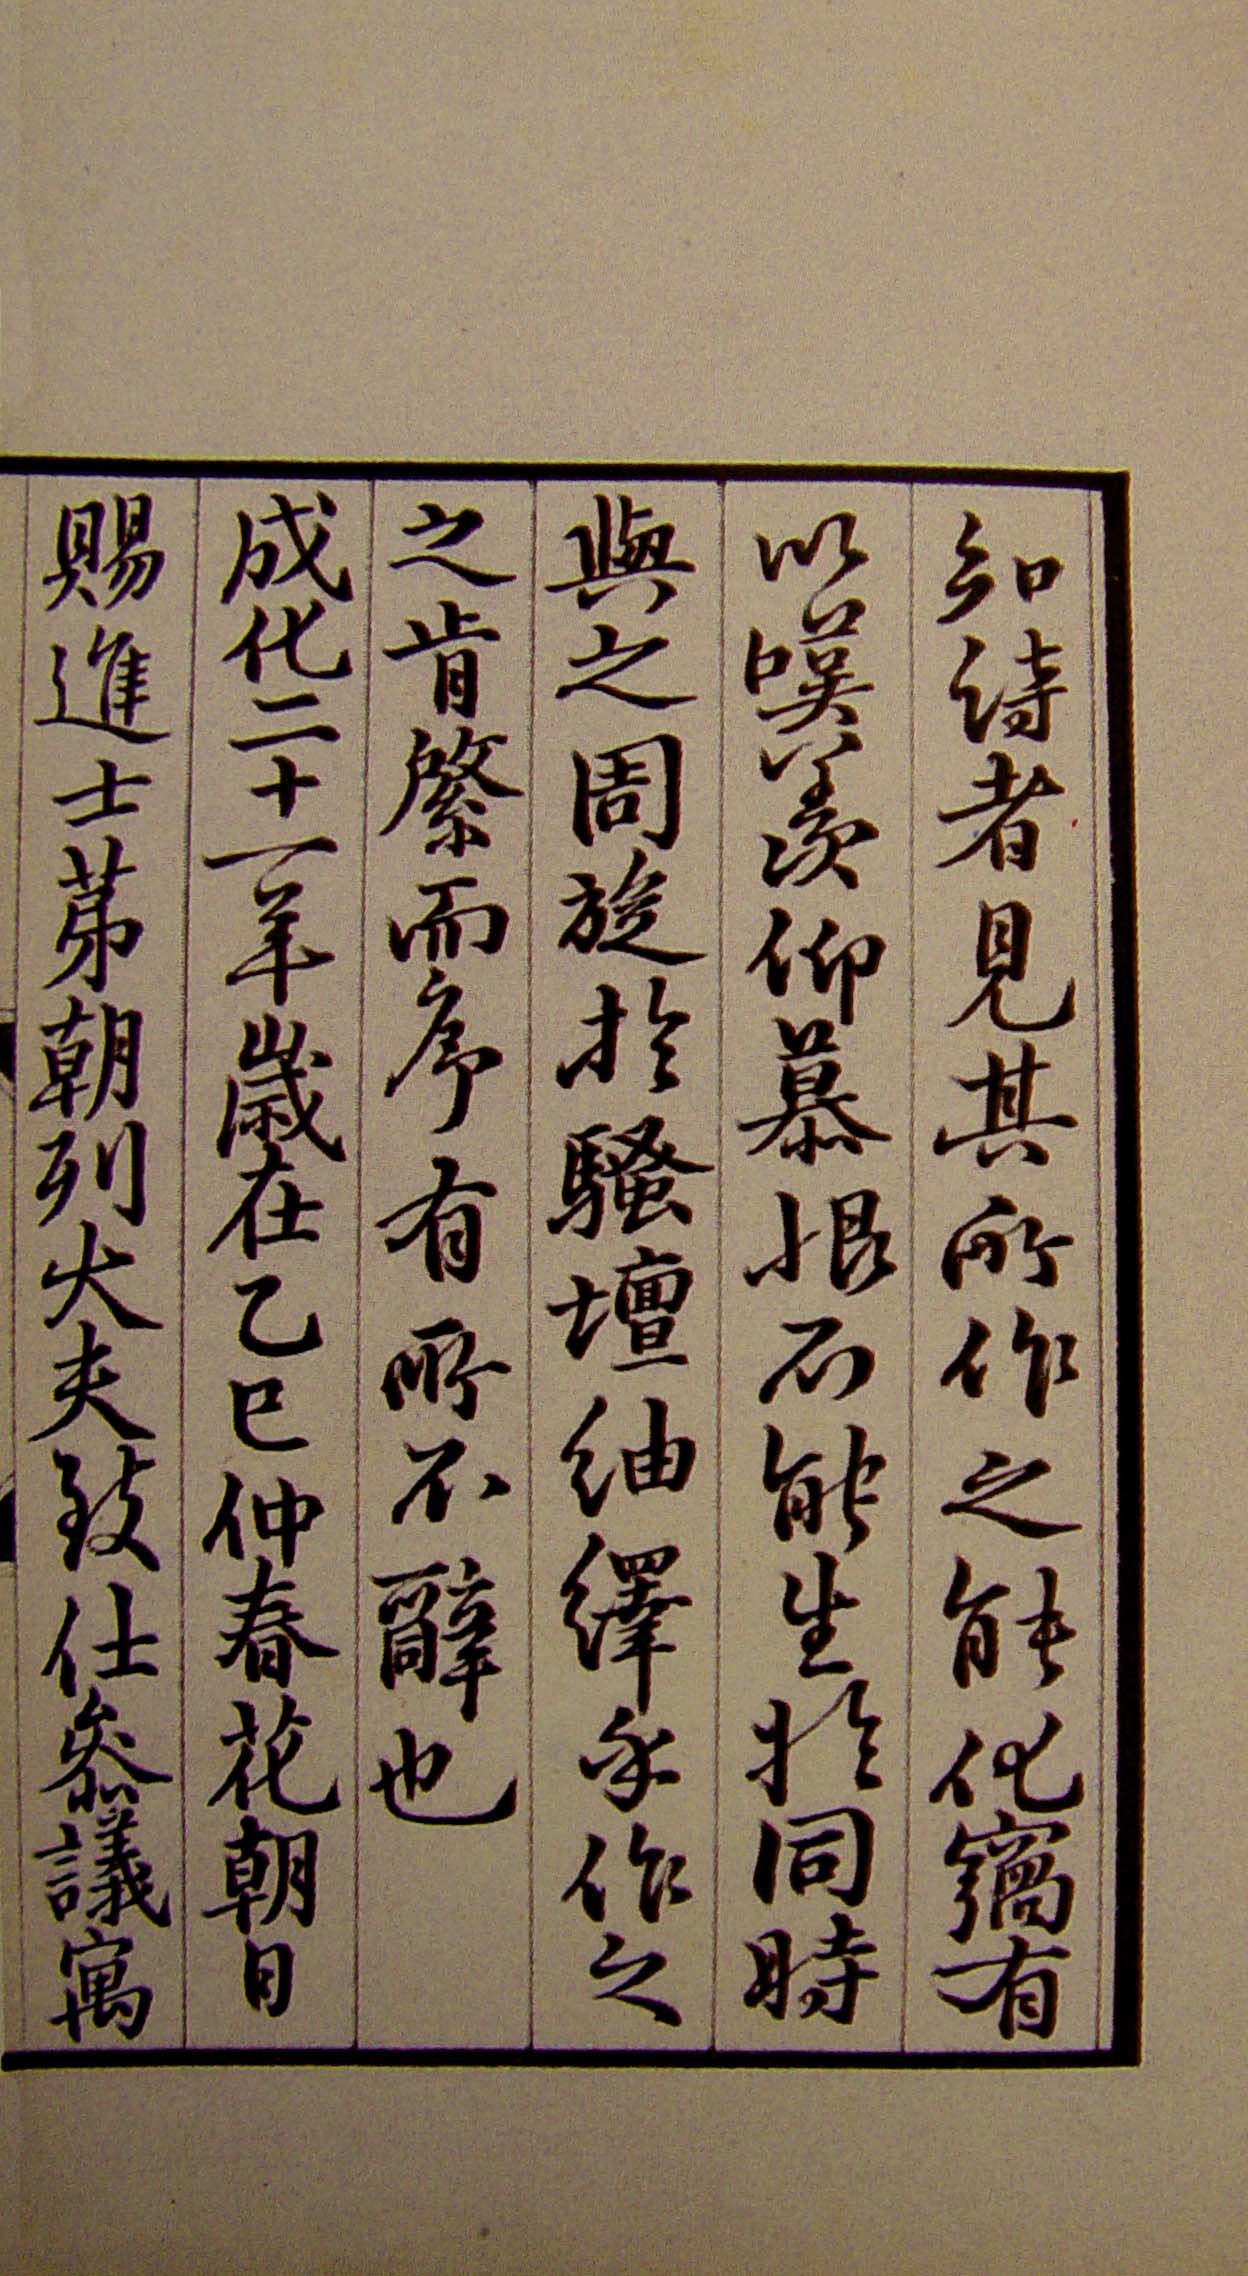 知詩者見其所作之能化竊有
以嘆羨仰慕恨不能生於同時
與之周旋於騷壇紬繹乎作之
之肯綮而序有所不辭也
成化二十一年歲在乙巳仲春花朝日
賜進士第朝列大夫致仕叅議寓